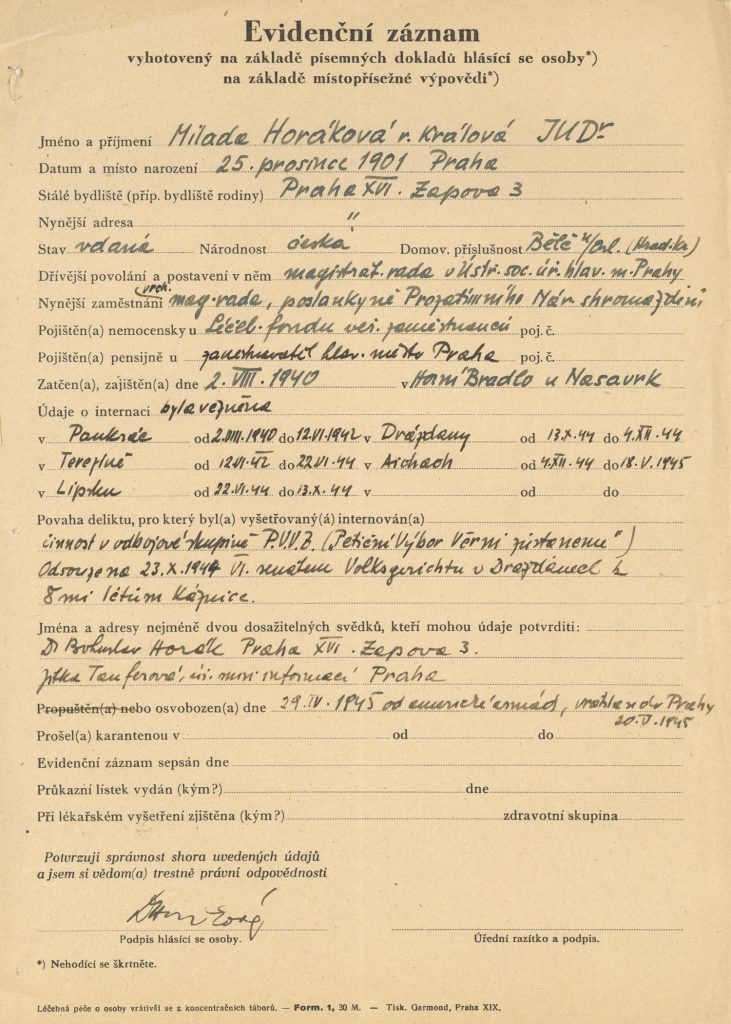 Evidenční záznam
vyhotovený na základě písemných dokladů hlásící se osoby*)
na základě místopřísežné výpovědi*)
Jméno a příjmení Milada Horáková r. Králová JUDr
Datum a místo narození 25. prosince 1901 Praha
Stálé bydliště (příp. bydliště rodiny) Praha XVI. Zapova 3
Nynější adresa "
Stav vdaná Národnost česká Domov. příslušnost Bělč n/Orl. (Hrad. Kr.)
Dřívější povolání a postavení v něm magistrát. rada v Ústř. soc. úř. hlav. m. Prahy
vrch.
Nynější zaměstnání mag. rada, poslankyně Prozatímního Nár. shromáždění
Pojištěn(a) nemocensky u Léčeb. fondu veř. zaměstnanců poj. č.
Pojištěn(a) pensijně u zaměstnavatel hlav. město Praha poj. č.
Zatčen(a), zajištěn(a) dne 2. VIII. 1940 v Horní Bradlo u Nasavrk
Údaje o internaci byla vězněna
v Pankrác od 2.VIII.1940 do 12.VI.1942 v Drážďany od 13.X.44 do 4.XII.44
v Terezíně od 12.VI.42 do 22.VI.44 v Aichach od 4.XII.44 do 18.V.1945
v Lipsku od 22.VI.44 do 13.X.44 v od do
Povaha deliktu, pro který byl(a) vyšetřovaný(á) internován(a)
činnost v odbojové skupině P.V.V.Z. (Petiční Výbor Věrni zůstaneme")
Odsouzena 23.X.1944 VI. senátem Volksgerichtu v Drážďanech k
8mi létům káznice.
Jména a adresy nejméně dvou dosažitelných svědků, kteří mohou údaje potvrditi:
Dr Bohuslav Horák Praha XVI. Zapova 3.
Jitka Tauferová, úř. min. informací Praha
Propuštěn(a) nebo osvobozen(a) dne 29.IV.1945 od americké armád, vrátila do Prahy
20.V.1945
Prošel(a) karantenou v od do
Evidenční záznam sepsán dne
Průkazní lístek vydán (kým?) dne
Při lékařském vyšetření zjištěna (kým?) zdravotní skupina
Potvrzuji správnost shora uvedených údajů
a jsem si vědom(a) trestně právní odpovědnosti
Podpis hlásící se osoby. Úřední razítko a podpis.
*) Nehodící se škrtněte.
Léčebná péče o osoby vrátivší se z koncentračních táborů. — Form. 1, 30 M. — Tisk. Garmond, Praha XIX.